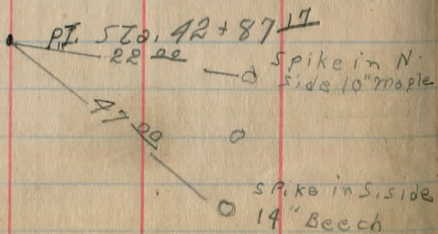 P.I. Sta. 42+87 17
22 00
Spike in N.
Side 10" maple
47 00
Spike in S. side
14" Beech